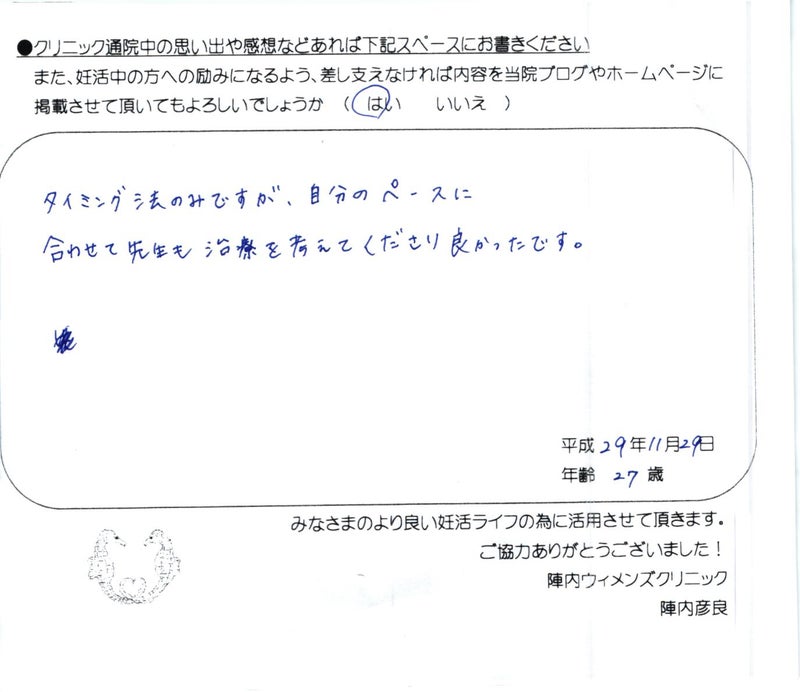 ●クリニック通院中の思い出や感想などあれば下記スペースにお書きください
また、妊活中の方への励みになるよう、差し支えなければ内容を当院ブログやホームページに
掲載させて頂いてもよろしいでしょうか （ はい いいえ ）
タイミング法のみですが、自分のペースに
合わせて先生も治療を考えてくださり良かったです。
平成 29年11月29日
年齢 27 歳
みなさまのより良い妊活ライフの為に活用させて頂きます。
ご協力ありがとうございました！
陣内ウィメンズクリニック
陣内彦良